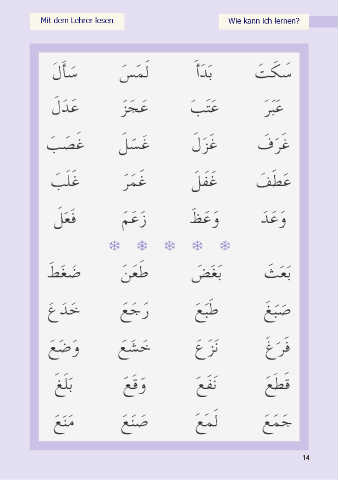 Mit dem Lehrer lesen. Wie kann ich lernen?
سَكَتَ بَدَأَ لَمَسَ سَأَلَ
عَبَرَ عَتَبَ عَجَزَ عَدَلَ
غَرَفَ غَزَلَ غَسَلَ غَصَبَ
عَطَفَ غَفَلَ غَمَرَ غَلَبَ
وَعَدَ وَعَظَ زَعَمَ فَعَلَ
بَعَثَ بَغَضَ طَعَنَ ضَغَطَ
صَبَغَ طَبَعَ رَجَعَ خَدَعَ
فَرَغَ نَزَعَ خَشَعَ وَضَعَ
قَطَعَ نَفَعَ وَقَعَ بَلَغَ
جَمَعَ لَمَعَ صَنَعَ مَنَعَ
14